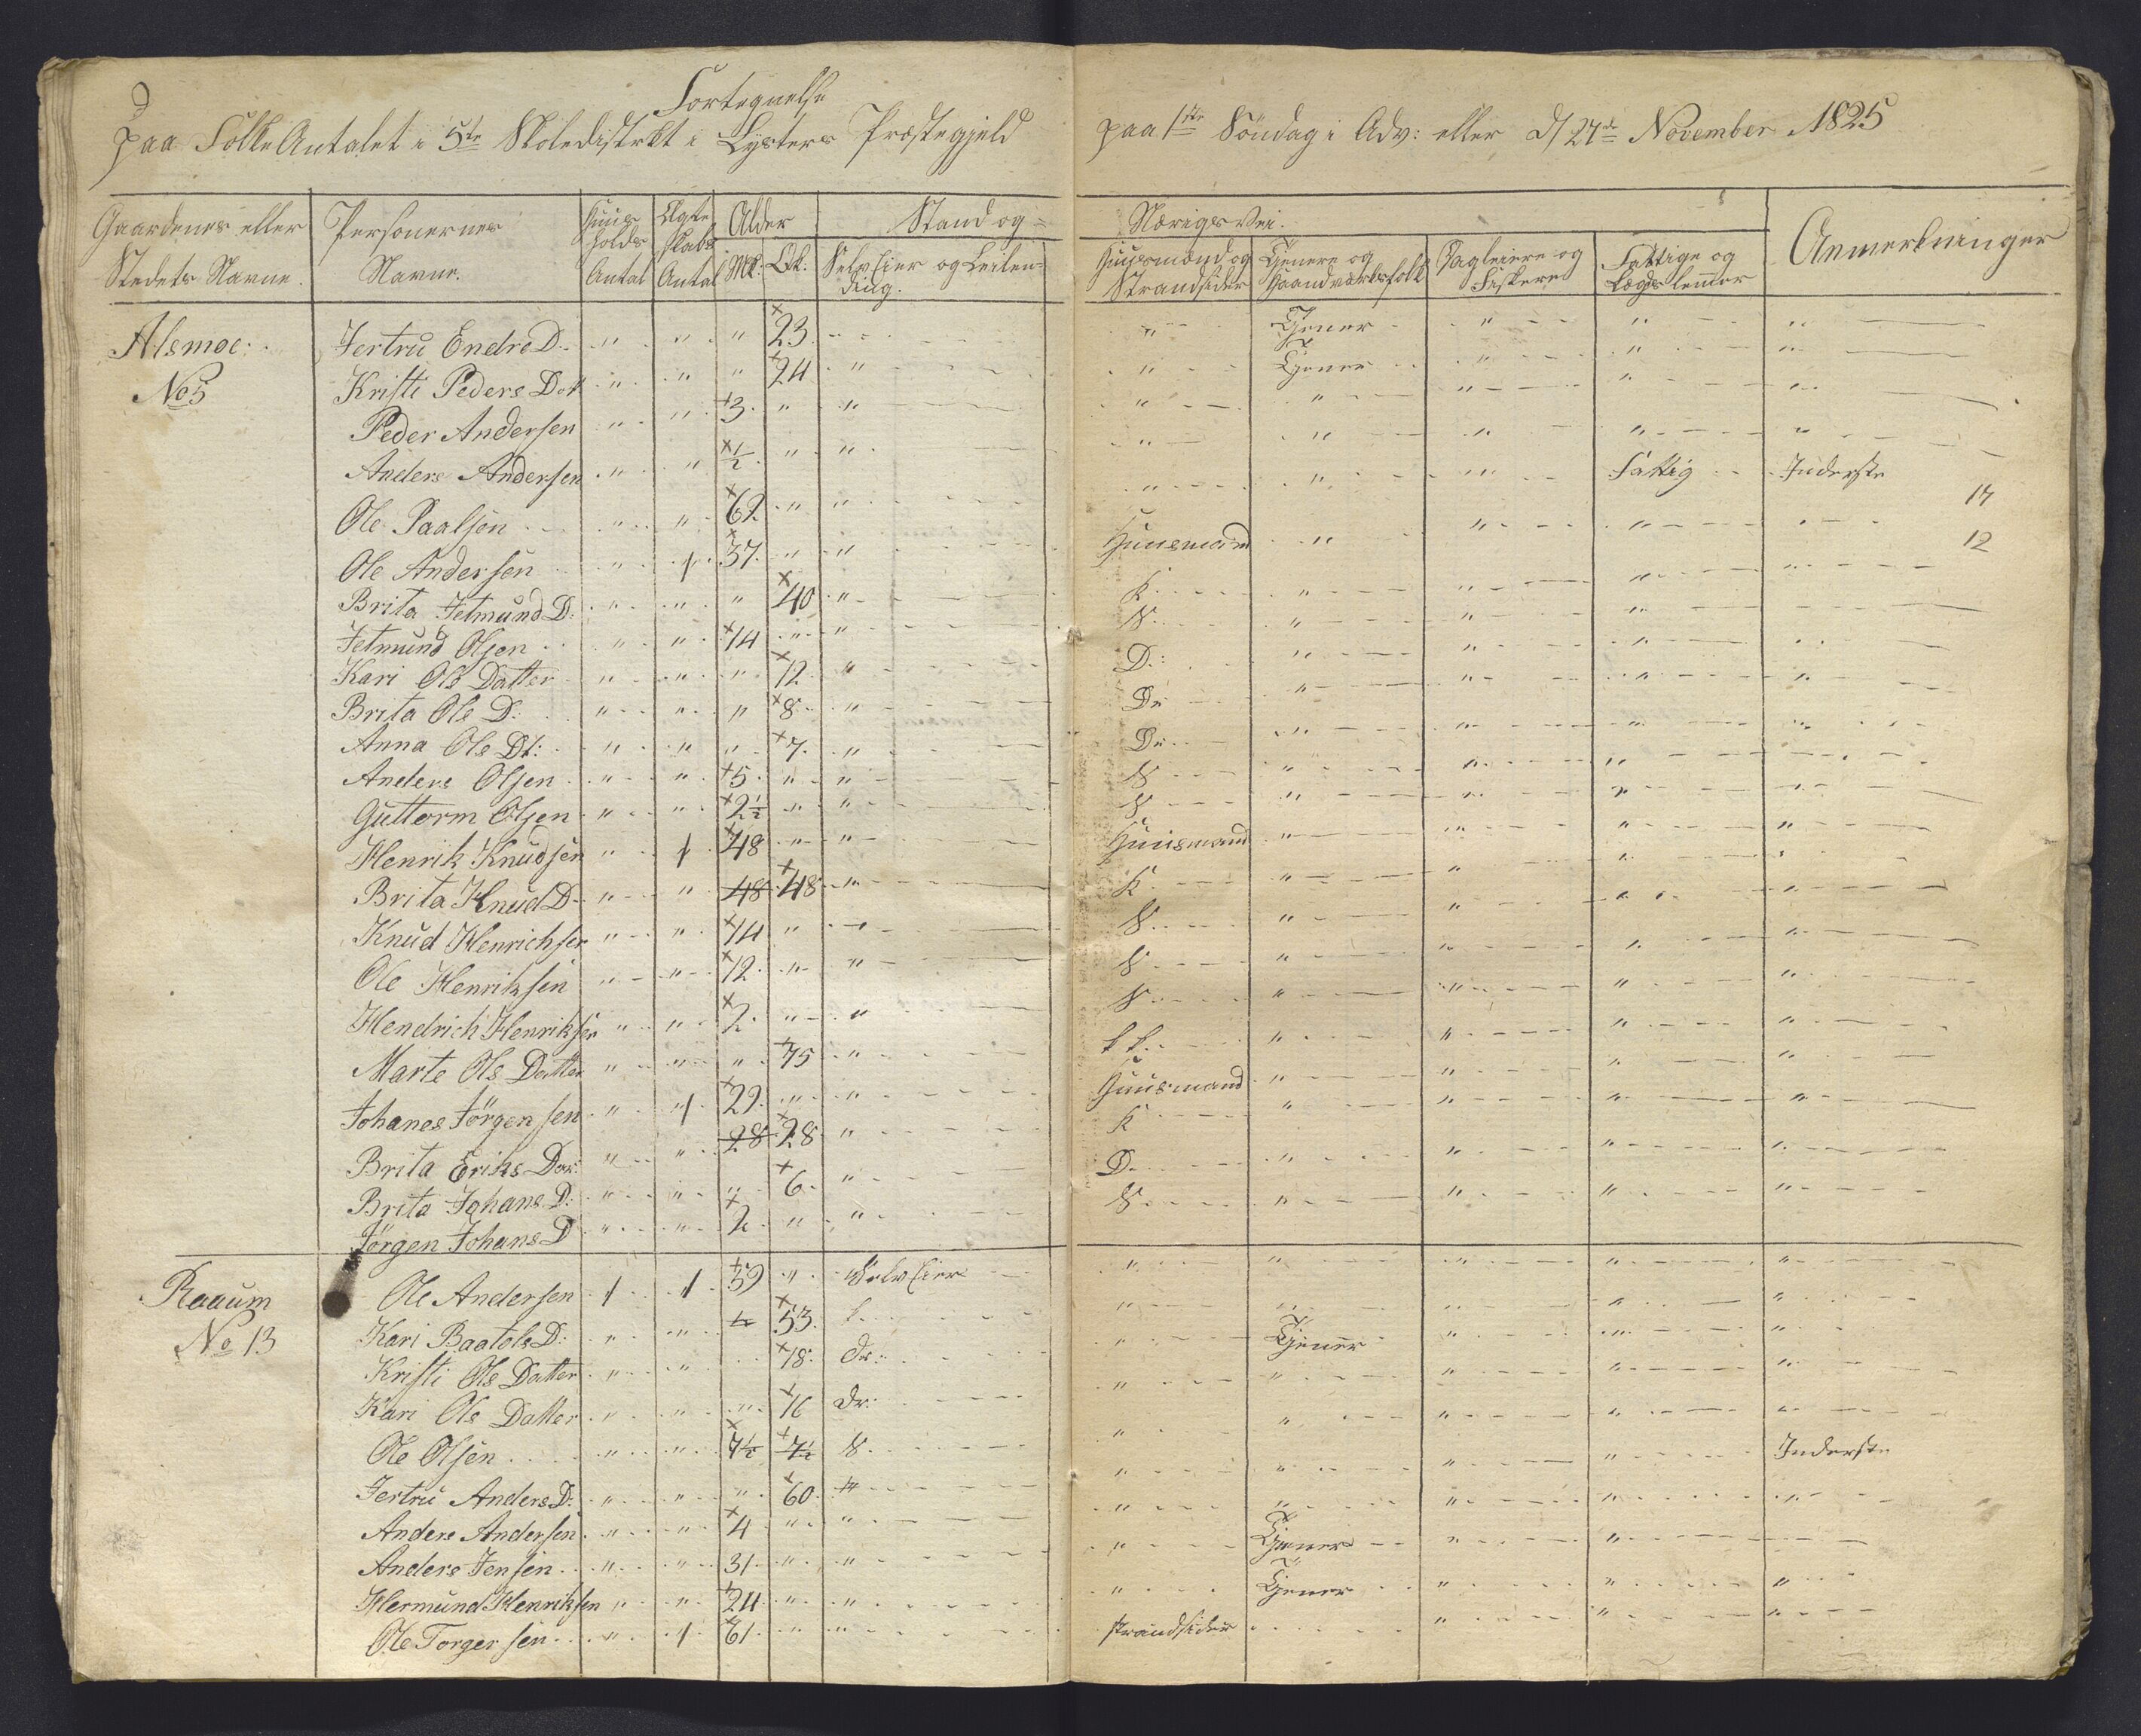 Fortegnelse
paa FolkeAntalet i 5te Skoledistrkt i Lysters Præstegjeld paa 1ste Söndag i Adv: eller d/27de November 1825
Gaardenes eller Stedets Navne. Personernes Navne. Huus holds Antal Ægte skabs Antal Alder Mk: Qk: Stand og = Selv Eier og Leilen= ding. Nærigs Vei. Huusmænd og Strandsider Tjenere og Haandværksfolk Dagleiere og Fiskere Fattige og Lægslemmer Anmerkninger
Alsmoe No 5 Jertru Endre D. " " " 23 " Tjener " " "
Kristi Peders Dot " " " 24 " " Tjener " " "
Peder Andersen " " 3 " " " " " " "
Anders Andersen " " 1/2 " " " " " " "
Ole Paalsön " " 62 " " " " " Fattig Inderste 14
Ole Andersen " 1 37 " " Huusmand " " " 12
Brita Jetmund D: " " " 40 " K " " " "
Jetmund Olsen " " 14 " " S " " "
Kari Ols Datter " " " 12 " D: " " "
Brita Ols D: " " " 8 " Dr " " " "
Anna Ols Dt: " " " 7 " Dr " " " "
Anders Olsen " " 5 " " S " " "
Guttorm Olsen " " 2 1/2 " " S " " " "
Henrik Knudsen " 1 48 " " Huusmand " " " "
Brita Knud D " " 48 48 " K " " "
Knud Henrichsen " " 14 " S " " " "
Ole Henriksen " " 12 " " S " " " "
Hendrich Henriksen " " 2 " " S " " " "
Marte Ols Datter " " " 75 " " " " "
Johanes Jörgensen " 1 29 " " Huusmand " " " "
Brita Eriks Dor: " " 28 28 " K " " " "
Brita Johans D: " " " 6 " D " " " "
Jörgen Johans D " " 2 " " S " " " "
Raaum No 13 Ole Andersen 1 1 59 " Selv Eier " " " " "
Kari Baatols D: " " 53 k " " " " "
Kristi Ols Datter " " 18 Dr: " Tjener " " "
Kari Ols Datter " " " 16 Dr: " " " " "
Ole Olsen " " 7 1/2 7 1/2 S " " " " "
Jertru Anders D: " " " 60 " " " " Inderste
Anders Andersen " " 4 " " " " " " "
Anders Jensen " " 31 " " " Tjener " "
Hermund Henriksen " " 24 " " " Tjener " " "
Ole Torgersen " 1 61 " " Strandsider " " "